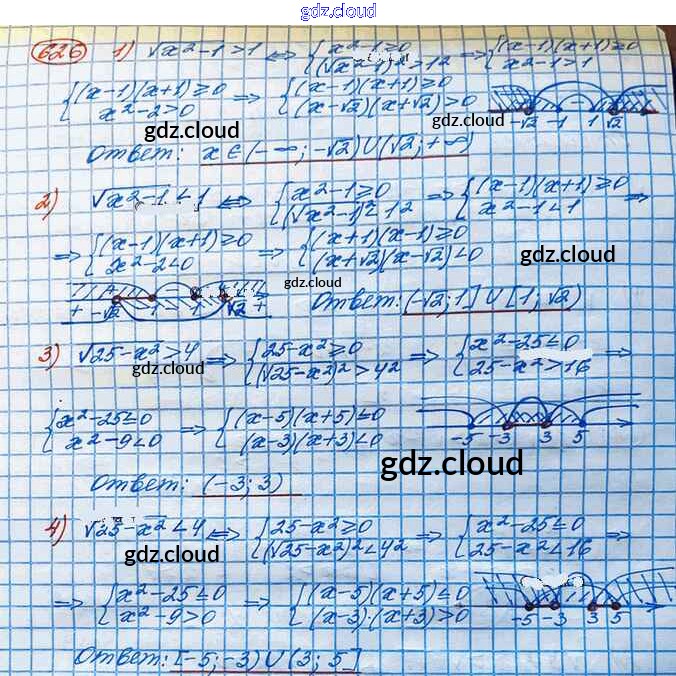 gdz.cloud
626 1) √x²-1 > 1 ⇔ {x²-1≥0 (√x²-1)² > 1² ⇒ {(x-1)(x+1)≥0 x²-1>1
{(x-1)(x+1)≥0 x²-2>0 ⇒ {(x-1)(x+1)≥0 (x-√2)(x+√2)>0 -√2 -1 1 √2
gdz.cloud gdz.cloud
Ответ: x∈(-∞; -√2)∪(√2; +∞)
2) √x²-1 < 1 ⇔ {x²-1≥0 (√x²-1)² < 1² ⇒ {(x-1)(x+1)≥0 x²-1<1 ⇒
⇒ {(x-1)(x+1)≥0 x²-2<0 ⇒ {(x+1)(x-1)≥0 (x+√2)(x-√2)<0
gdz.cloud
gdz.cloud
+ -√2 -1 - 1 √2 + Ответ: (-√2; 1]∪[1; √2)
3) √25-x² > 4 ⇒ {25-x²≥0 (√25-x²)² > 4² ⇒ {x²-25≤0 25-x²>16 ⇒
gdz.cloud
{x²-25≤0 x²-9<0 ⇒ {(x-5)(x+5)≤0 (x-3)(x+3)<0 -5 -3 3 5
gdz.cloud
Ответ: (-3; 3)
4) √25-x² < 4 ⇔ {25-x²≥0 (√25-x²)² < 4² ⇒ {x²-25≤0 25-x²<16 ⇒
gdz.cloud
⇒ {x²-25≤0 x²-9>0 ⇒ {(x-5)(x+5)≤0 (x-3)·(x+3)>0 -5 -3 3 5
gdz.cloud
Ответ: [-5; -3)∪(3; 5]